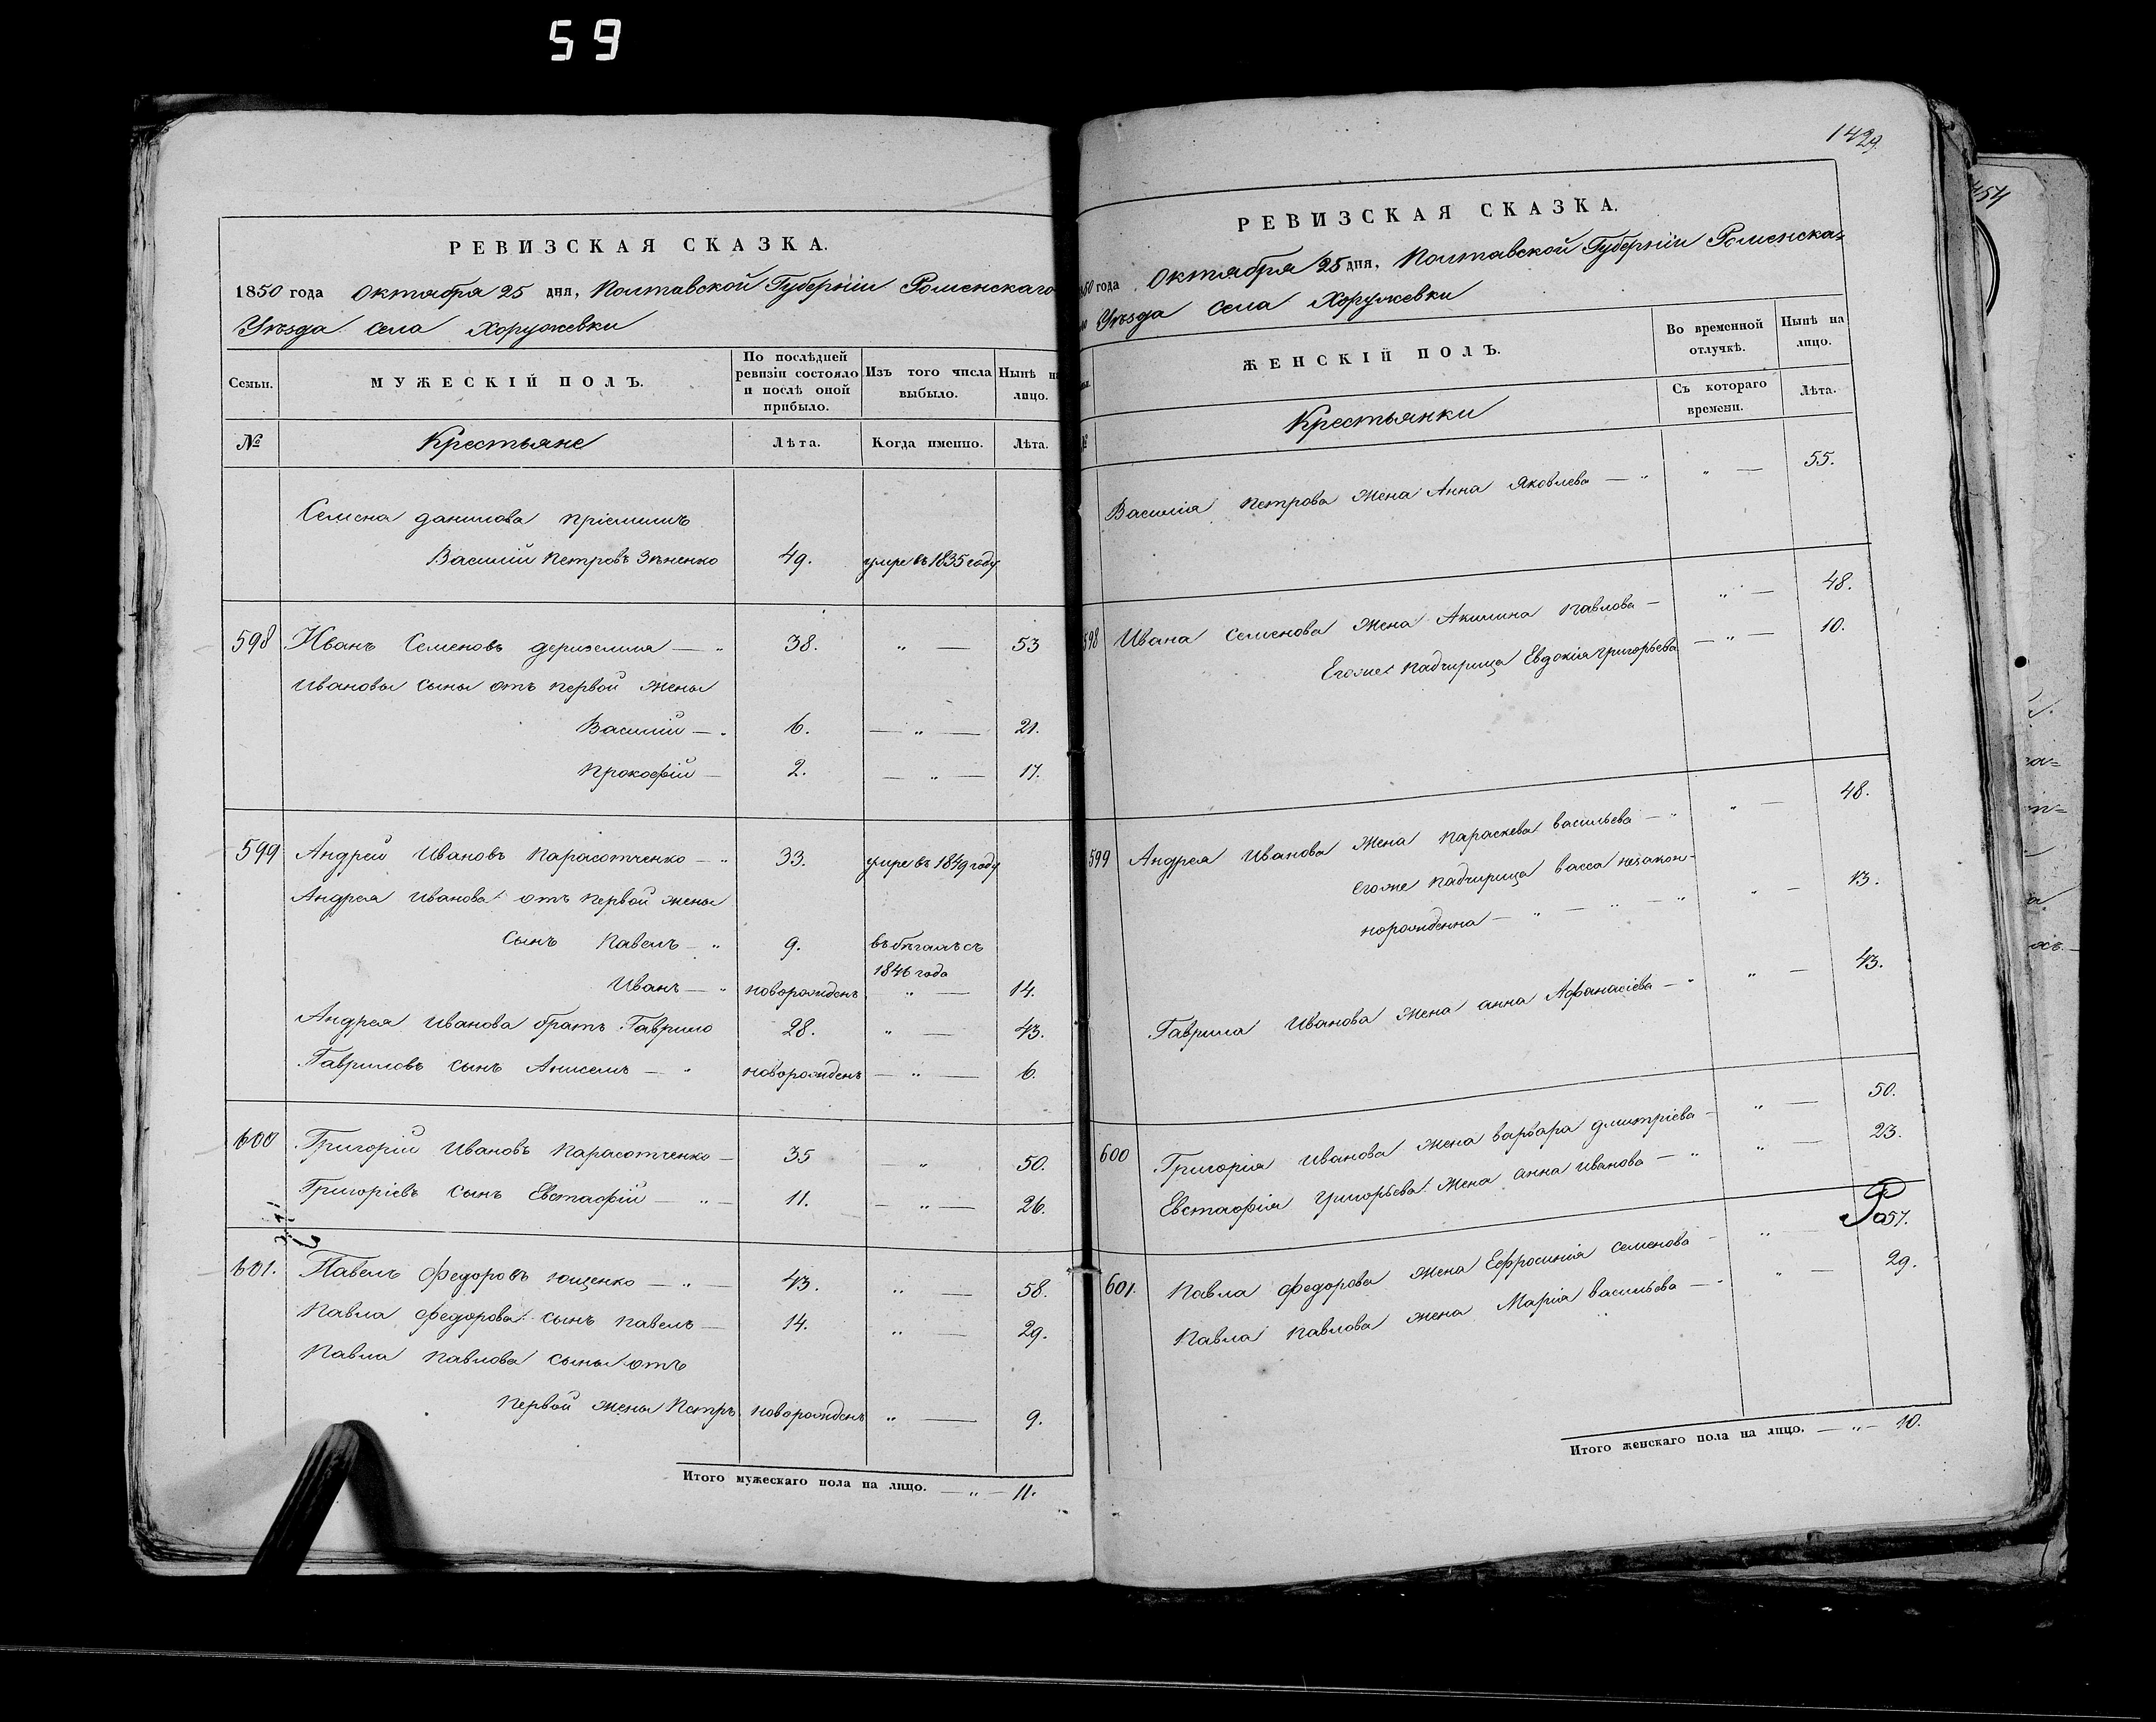 59
РЕВИЗСКАЯ СКАЗКА.
1850 года Октября 25 дня, Полтавской Губерніи Роменскаго
Уѣзда села Хоружевки
Семьи. МУЖЕСКІЙ ПОЛЪ. По послѣдней ревизіи состояло и послѣ оной прибыло. Изъ того числа выбыло. Нынѣ на лицо.
№ Крестьяне Лѣта. Когда именно. Лѣта.
Семена данилова пріемышъ
Василій Петровъ Зѣненко 49. умре въ 1835 году
598 Иванъ Семеновъ держеммя 38. „ — 53
Ивановы сыны отъ первой жены
Василій — „ 6. — „ — 21.
Прокофій — 2. — „ — 17.
599 Андрей Ивановъ Парасотченко — „ 33. умре въ 1849 году
Андрея Иванова отъ первой жены
сынъ Павелъ — „ 9. въ бѣгахъ съ
1846 года
Иванъ — „ новорожденъ „ — 14.
Андрея Иванова братъ Гаврило 28. „ — 43.
Гавриловъ сынъ Анисимъ — „ новорожденъ — „ — 6.
600 Григорій Ивановъ Парасотченко — 35 — „ 50.
Григоріевъ сынъ Евстафій — „ — 11. — „ — 26.
601. Павелъ Федоровъ Ющенко — „ — 43. „ — 58.
Павла Федорова сынъ Павелъ — 14. „ — 29.
Павла Павлова сыны отъ
первой жены Петръ новорожденъ „ — 9.
Итого мужескаго пола на лицо. — „ — 11.
1429.
РЕВИЗСКАЯ СКАЗКА.
850 года Октября 25 дня, Полтавской Губерніи Роменска=
го Уѣзда села Хоружевки
ЖЕНСКІЙ ПОЛЪ. Во временной отлучкѣ. Нынѣ на лицо.
№ Крестьянки Съ котораго времени. Лѣта.
Василія Петрова жена Анна Яковлева — „ „ — 55.
598 Ивана Семенова жена Акилина Павлова — „ — 48.
Егоже падчирица Евдокія Григорьева — „ — 10.
599 Андрея Иванова жена Параскева Васильева — „ „ — 48.
Егоже падчирица Васса незакон-
норожденна — „ — „ — „ „ — 13.
Гаврила Иванова жена Анна Афанасіева — „ „ — 43.
600 Григорія Иванова жена Варвара Дмитріева — „ — 50.
Евстафія Григорьева жена Анна Иванова — „ „ — 23.
601. Павла Федорова жена Ефросинія Семенова — „ — 57.
Павла Павлова жена Марія Васильева — „ „ — 29.
Итого женскаго пола на лицо. — „ — 10.
454